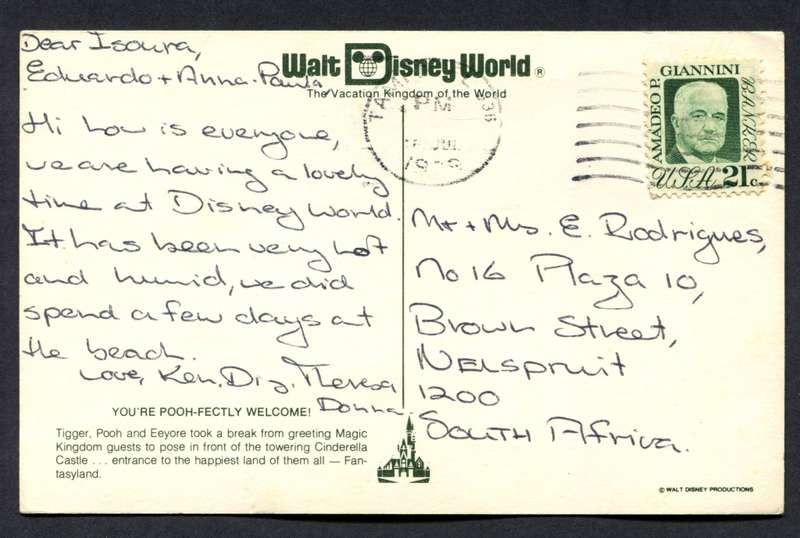 Dear Isoura,
Eduardo + Anna-Paula
Hi how is everyone,
we are having a lovely
time at Disney World.
It has been very hot
and humid, we did
spend a few days at
the beach.
Love, Ken, Theresa
Donna.
YOU'RE POOH-FECTLY WELCOME!
Tigger, Pooh and Eeyore took a break from greeting Magic
Kingdom guests to pose in front of the towering Cinderella
Castle . . . entrance to the happiest land of them all — Fan-
tasyland.
Walt Disney World ®
The Vacation Kingdom of the World
PM
JUL
AMADEO P. GIANNINI
BANKER
USA 21c
Mr + Mrs. E. Rodrigues,
No 16 Plaza 10,
Brown Street,
NELSpruit
1200
SOUTH Africa.
© WALT DISNEY PRODUCTIONS